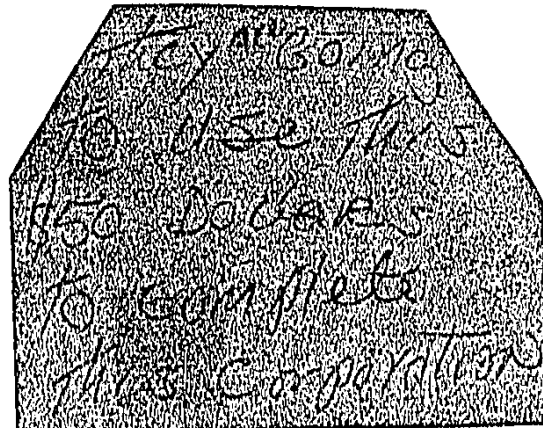 They are going
to use this
$50 Dollars
to complete
this corporation